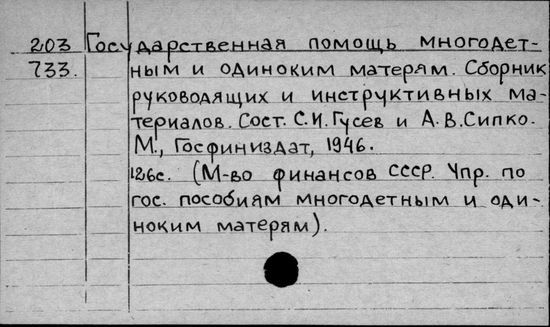 203 Государственная помощь многодет-
733. ным и одиноким матерям. Сборник
руководящих и инструктивных ма-
териалов. Сост. С.И.Гусев и А.В.Сипко.
М., Госфиниздат, 1946.
126с. (М-во финансов СССР. Упр. по
гос. пособиям многодетным и оди-
ноким матерям).